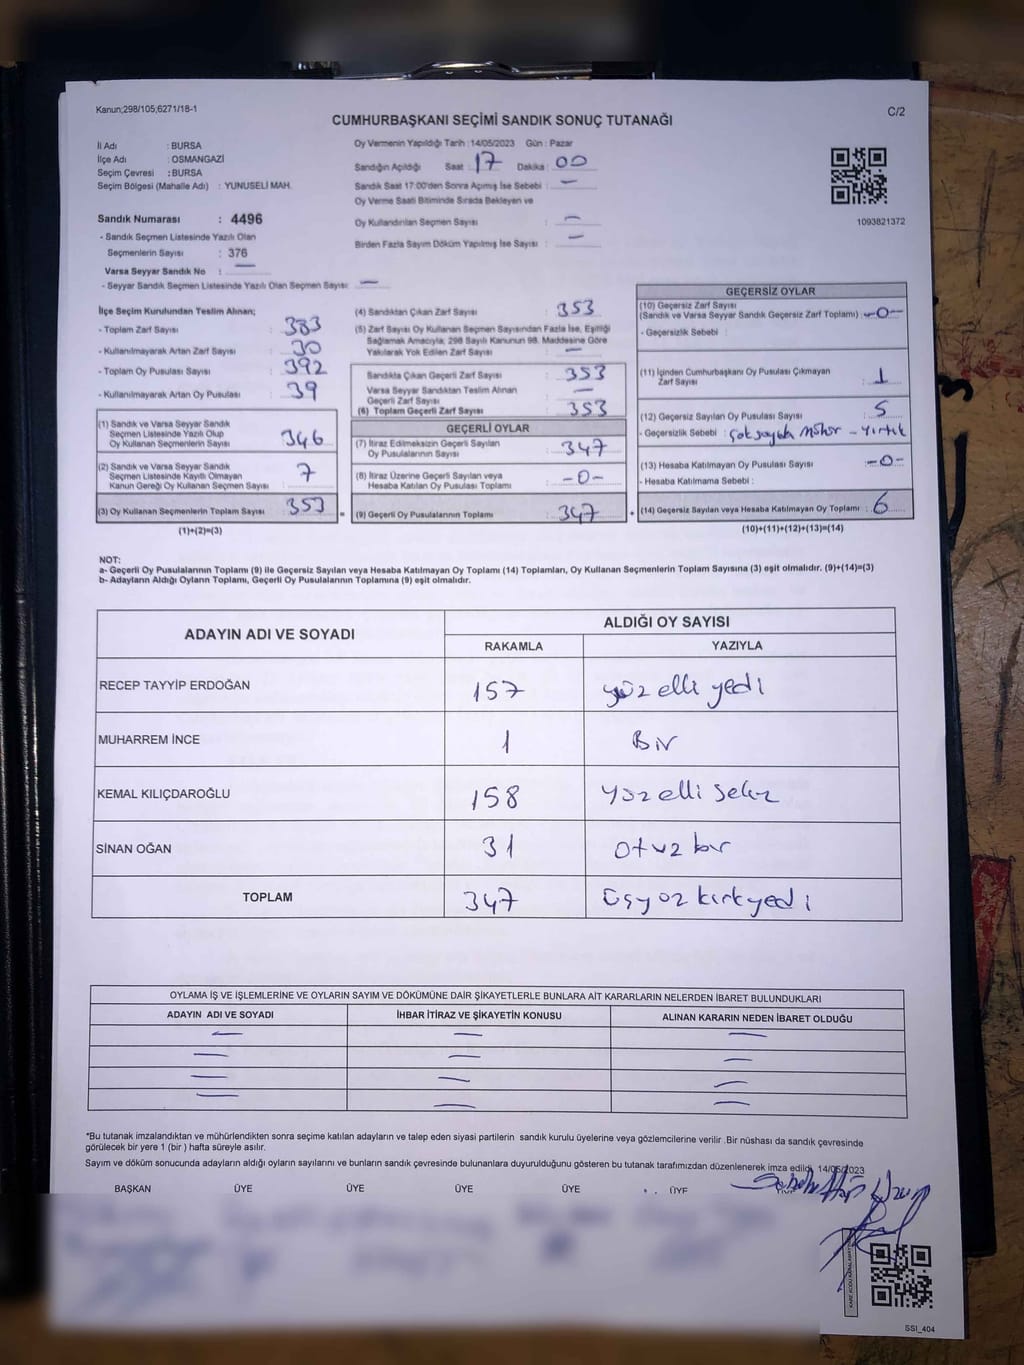 Kanun;298/105;6271/18-1
C/2
CUMHURBAŞKANI SEÇİMİ SANDIK SONUÇ TUTANAĞI
İl Adı : BURSA
İlçe Adı : OSMANGAZİ
Seçim Çevresi : BURSA
Seçim Bölgesi (Mahalle Adı) : YUNUSELİ MAH.
Sandık Numarası : 4496
- Sandık Seçmen Listesinde Yazılı Olan
Seçmenlerin Sayısı : 376
Varsa Seyyar Sandık No : —
- Seyyar Sandık Seçmen Listesinde Yazılı Olan Seçmen Sayısı: —
Oy Vermenin Yapıldığı Tarih :14/05/2023 Gün : Pazar
Sandığın Açıldığı Saat : 17 Dakika : 00
Sandık Saat 17:00'den Sonra Açılmış İse Sebebi : —
Oy Verme Saati Bitiminde Sırada Bekleyen ve
Oy Kullandırılan Seçmen Sayısı : —
Birden Fazla Sayım Döküm Yapılmış İse Sayısı : —
1093821372
İlçe Seçim Kurulundan Teslim Alınan;
- Toplam Zarf Sayısı : 383
- Kullanılmayarak Artan Zarf Sayısı : 30
- Toplam Oy Pusulası Sayısı : 392
- Kullanılmayarak Artan Oy Pusulası : 39
(1) Sandık ve Varsa Seyyar Sandık
Seçmen Listesinde Yazılı Olup
Oy Kullanan Seçmenlerin Sayısı : 346
(2) Sandık ve Varsa Seyyar Sandık
Seçmen Listesinde Kayıtlı Olmayan
Kanun Gereği Oy Kullanan Seçmen Sayısı : 7
(3) Oy Kullanan Seçmenlerin Toplam Sayısı : 353 =
(1)+(2)=(3)
(4) Sandıktan Çıkan Zarf Sayısı : 353
(5) Zarf Sayısı Oy Kullanan Seçmen Sayısından Fazla İse, Eşitliği
Sağlamak Amacıyla; 298 Sayılı Kanunun 98. Maddesine Göre
Yakılarak Yok Edilen Zarf Sayısı : —
Sandıkta Çıkan Geçerli Zarf Sayısı : 353
Varsa Seyyar Sandıktan Teslim Alınan
Geçerli Zarf Sayısı : —
(6) Toplam Geçerli Zarf Sayısı : 353
GEÇERLİ OYLAR
(7) İtiraz Edilmeksizin Geçerli Sayılan
Oy Pusulalarının Sayısı : 347
(8) İtiraz Üzerine Geçerli Sayılan veya
Hesaba Katılan Oy Pusulası Toplamı : -0-
(9) Geçerli Oy Pusulalarının Toplamı : 347 +
GEÇERSİZ OYLAR
(10) Geçersiz Zarf Sayısı
(Sandık ve Varsa Seyyar Sandık Geçersiz Zarf Toplamı) : -0-
- Geçersizlik Sebebi :
(11) İçinden Cumhurbaşkanı Oy Pusulası Çıkmayan
Zarf Sayısı : 1
(12) Geçersiz Sayılan Oy Pusulası Sayısı : 5
- Geçersizlik Sebebi : Çok sayıda Mühür - Yırtık
(13) Hesaba Katılmayan Oy Pusulası Sayısı : -0-
- Hesaba Katılmama Sebebi :
(14) Geçersiz Sayılan veya Hesaba Katılmayan Oy Toplamı : 6
(10)+(11)+(12)+(13)=(14)
NOT:
a- Geçerli Oy Pusulalarının Toplamı (9) ile Geçersiz Sayılan veya Hesaba Katılmayan Oy Toplamı (14) Toplamları, Oy Kullanan Seçmenlerin Toplam Sayısına (3) eşit olmalıdır. (9)+(14)=(3)
b- Adayların Aldığı Oyların Toplamı, Geçerli Oy Pusulalarının Toplamına (9) eşit olmalıdır.
ADAYIN ADI VE SOYADI
ALDIĞI OY SAYISI
RAKAMLA YAZIYLA
RECEP TAYYİP ERDOĞAN 157 yüz elli yedi
MUHARREM İNCE 1 Bir
KEMAL KILIÇDAROĞLU 158 yüz elli sekiz
SİNAN OĞAN 31 otuz bir
TOPLAM 347 Üçyüz kırk yedi
OYLAMA İŞ VE İŞLEMLERİNE VE OYLARIN SAYIM VE DÖKÜMÜNE DAİR ŞİKAYETLERLE BUNLARA AİT KARARLARIN NELERDEN İBARET BULUNDUKLARI
ADAYIN ADI VE SOYADI İHBAR İTİRAZ VE ŞİKAYETİN KONUSU ALINAN KARARIN NEDEN İBARET OLDUĞU
— — —
— — —
— — —
— — —
*Bu tutanak imzalandıktan ve mühürlendikten sonra seçime katılan adayların ve talep eden siyasi partilerin sandık kurulu üyelerine veya gözlemcilerine verilir .Bir nüshası da sandık çevresinde
görülecek bir yere 1 (bir ) hafta süreyle asılır.
Sayım ve döküm sonucunda adayların aldığı oyların sayılarını ve bunların sandık çevresinde bulunanlara duyurulduğunu gösteren bu tutanak tarafımızdan düzenlenerek imza edildi. 14/05/2023
BAŞKAN ÜYE ÜYE ÜYE ÜYE ÜYE
SSI_404